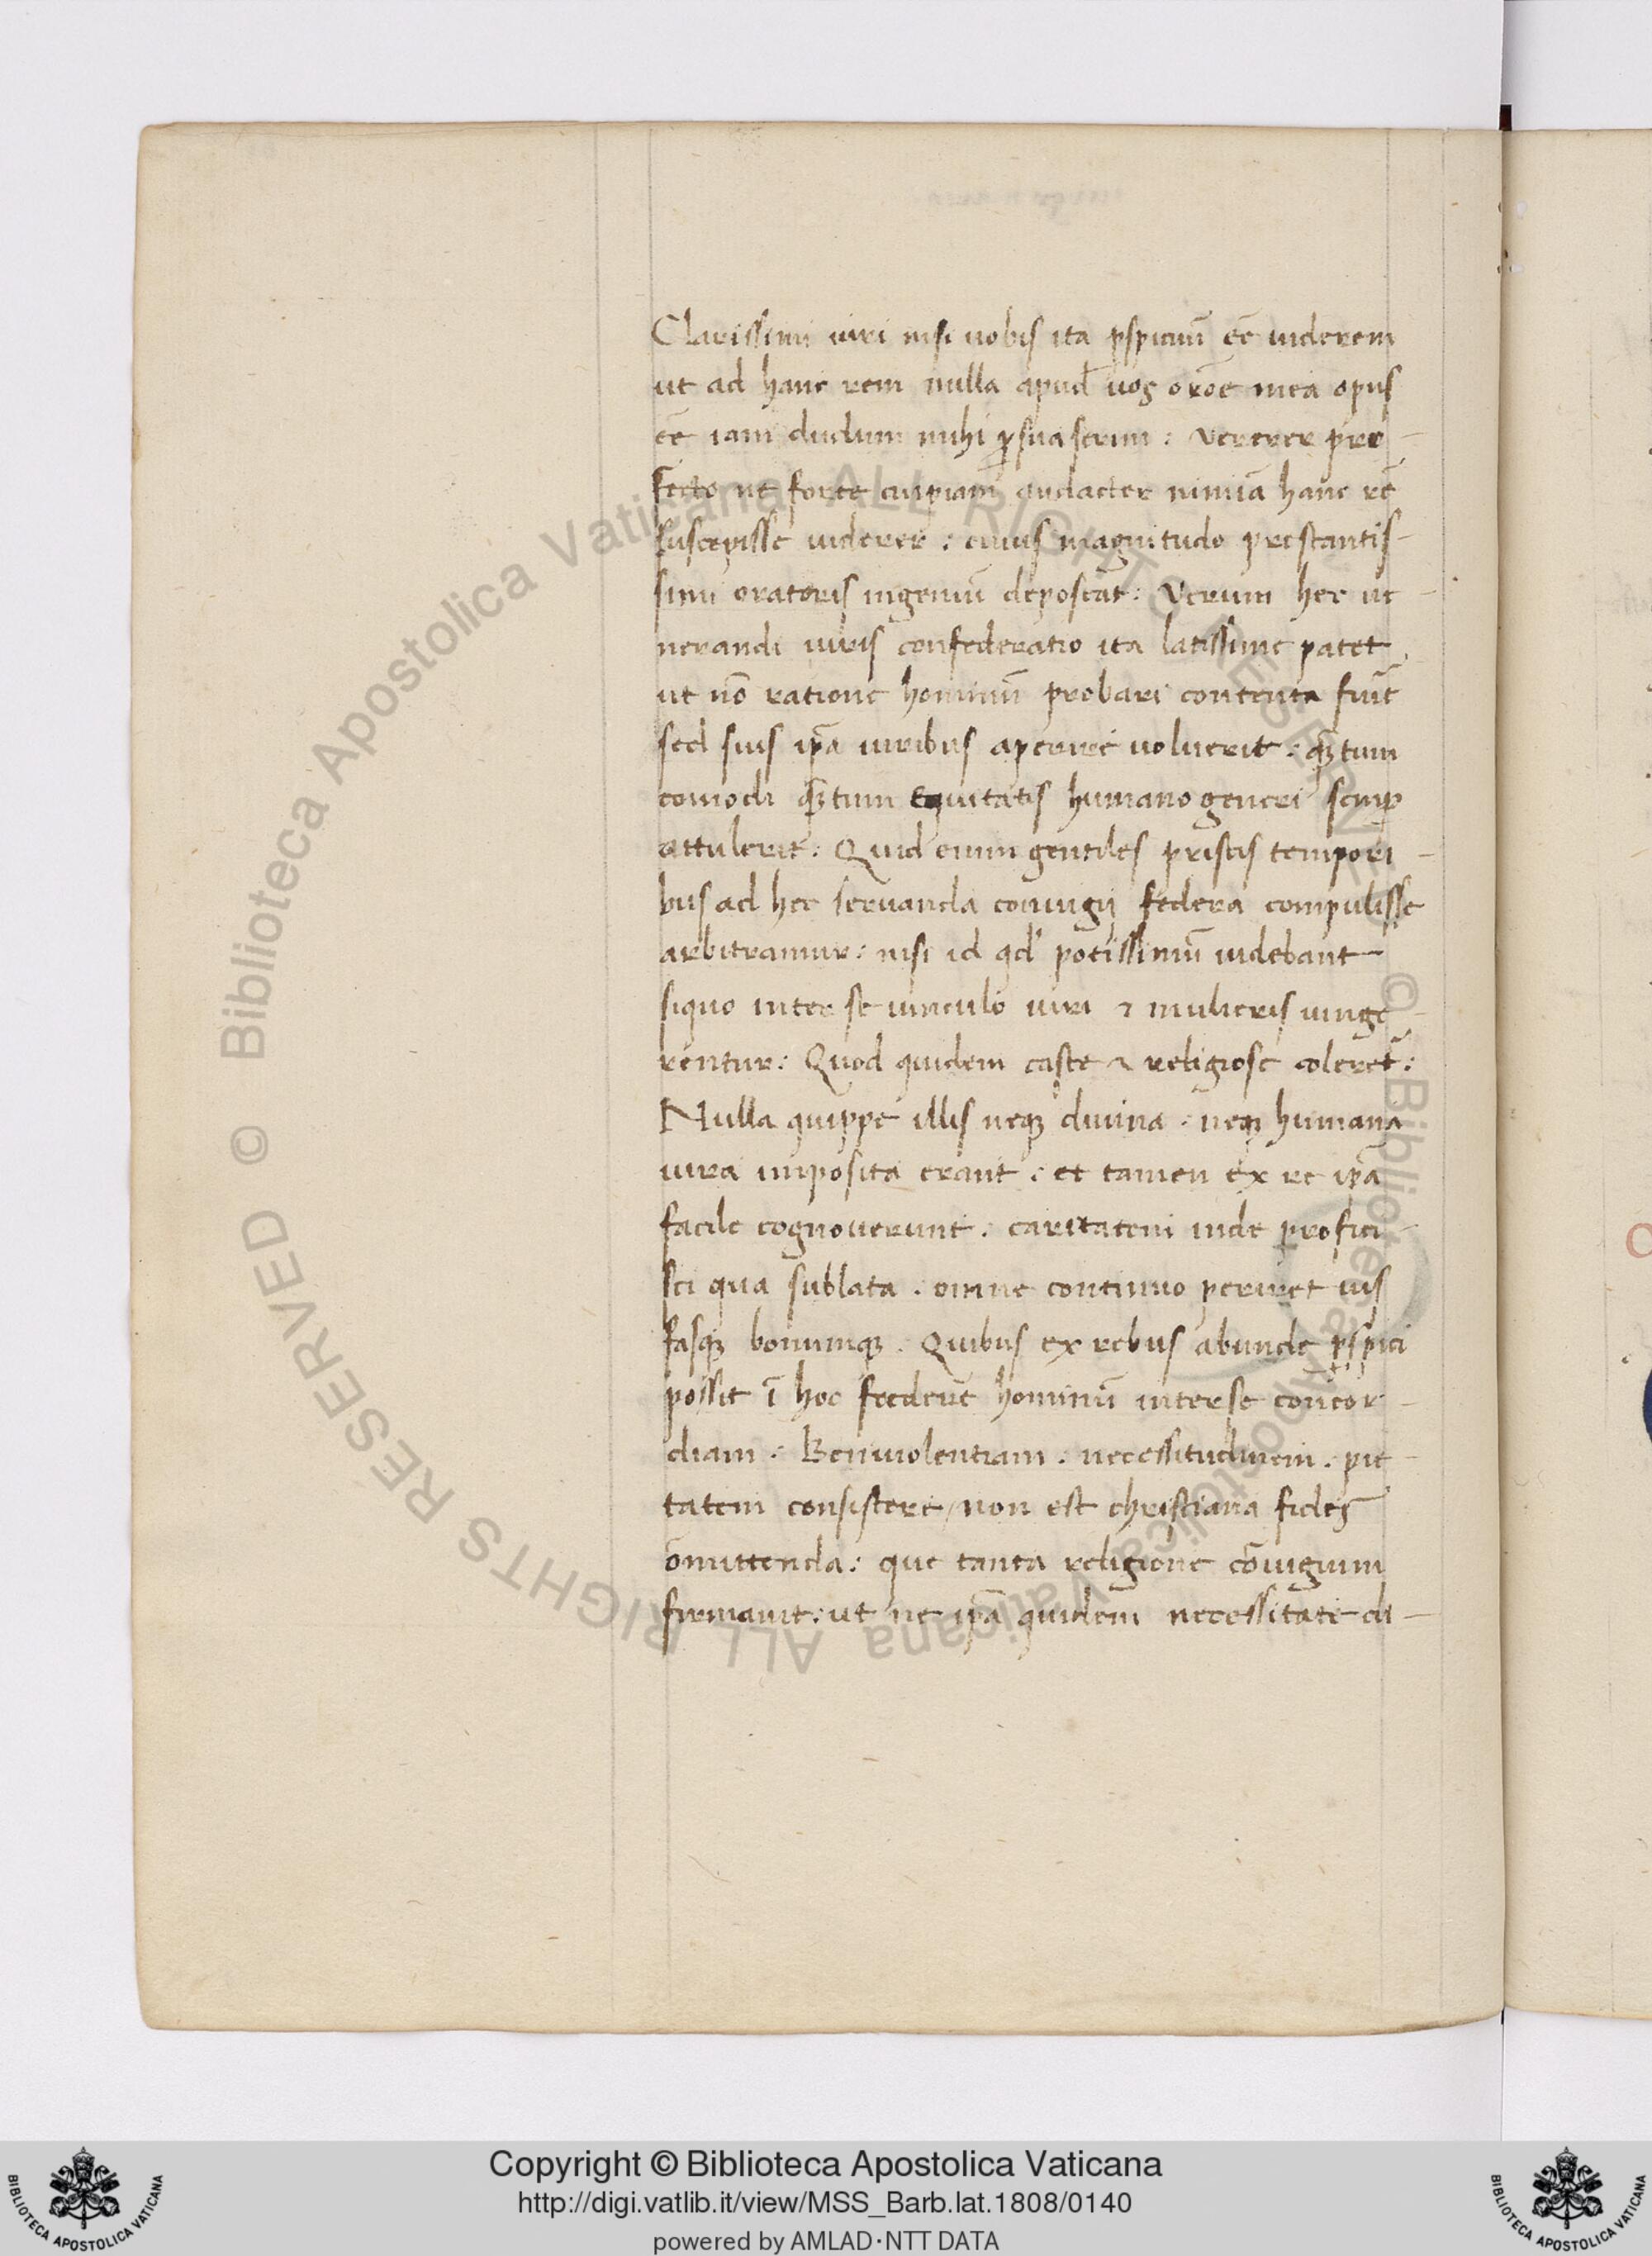 Clarissimi uiri nisi uobis ita ꝑspicuū eē uiderem
ut ad hanc rem nulla apud uos orōe mea opus
eē iam dudum mihi ꝑsuaserim: vererer pro-
fecto ne forte cuipiam audacter nimiā hanc rē
suscepisse uiderer: cuius magnitudo prestantis-
simi oratoris ingeniū deposcat: Verum hec ue-
nerandi iuris confederatio ita latissime patet
ut nō ratione hominū probari contenta fuīt
sed suis ip̄a uiribus aperire uoluerit: qȝtum
comodi qȝtum equitatis humano generi semꝑ
attulerit: Quid enim gentiles priscis tempori-
bus ad hec seruanda coniugij federa compulisse
arbitramur: nisi id qd' potissimū uidebant
siquo inter se uinculo uiri ⁊ mulieris iunge-
rentur: Quod quidem caste ⁊ religiose coleret̄:
Nulla quippe illis neqȝ diuina. neqȝ humana
iura imposita erant: et tamen ex re ip̄a
facile cognouerunt. caritatem inde profici-
sci qua sublata. omne continuo periret ius
fasqȝ bonumqȝ. Quibus ex rebus abunde ꝑspici
possit ī hoc foedere hominū inter se concor-
diam: Beniuolentiam. necessitudinem. pie-
tatem consistere/ non est christiana fides
omittenda: que tanta religione cōiugium
firmauit: ut ne ip̄a quidem necessitate di-
Copyright © Biblioteca Apostolica Vaticana
http://digi.vatlib.it/view/MSS_Barb.lat.1808/0140
powered by AMLAD·NTT DATA
BIBLIOTECA APOSTOLICA VATICANA
BIBLIOTECA APOSTOLICA VATICANA
© Biblioteca Apostolica Vaticana ALL RIGHTS RESERVED
© Biblioteca Apostolica Vaticana ALL RIGHTS RESERVED